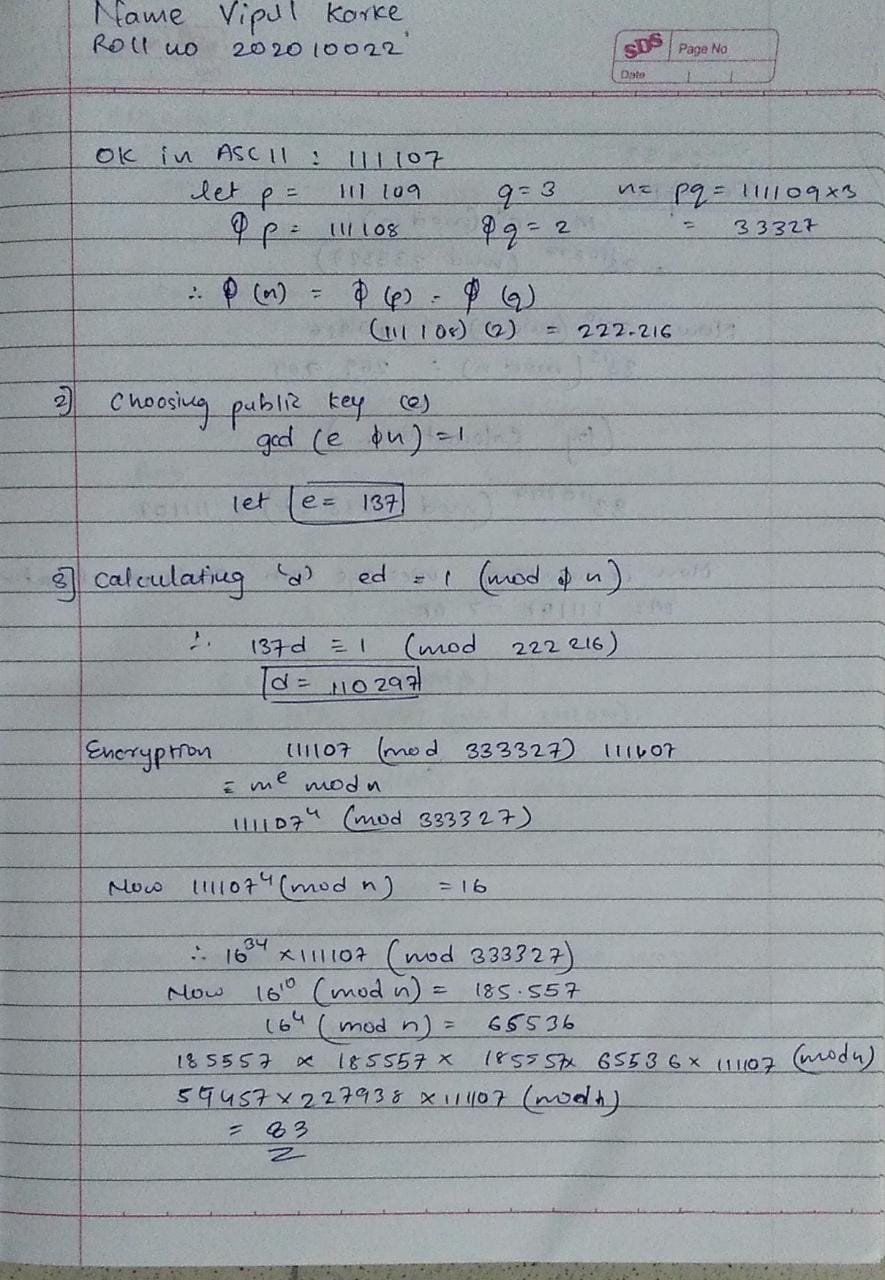 Name Vipul Korke
Roll no 202010022
SDS Page No
Date
OK in ASCII : 111107
let p = 111109 q = 3 n = pq = 111109x3
φp = 111108 φq = 2 = 33327
∴ φ(n) = φ(p) - φ(q)
(111108) (2) = 222.216
2] Choosing public key (e)
gcd (e φn) = 1
let e = 137
3] calculating 'd' ed = 1 (mod φn)
∴ 137d ≡ 1 (mod 222216)
d = 110297
Encryption 111107 (mod 333327) 111607
= m^e mod n
111107^4 (mod 333327)
Now 111107^4 (mod n) = 16
∴ 16^34 x 111107 (mod 333327)
Now 16^10 (mod n) = 185.557
16^4 (mod n) = 65536
185557 x 185557 x 185557x 65536 x 111107 (mod n)
59457 x 227938 x 111107 (mod n)
= 83